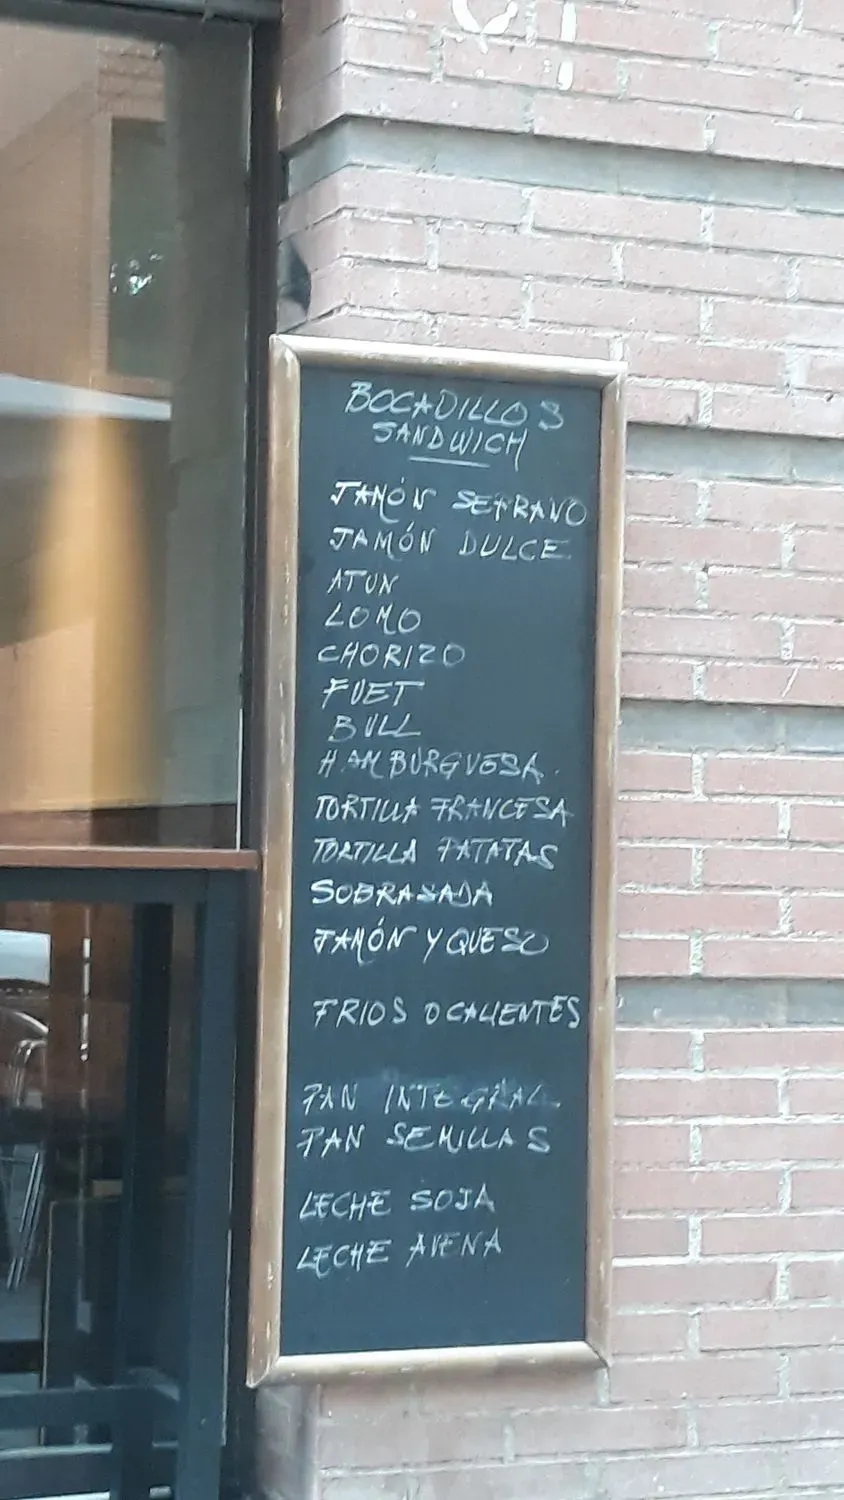 BOCADILLOS
SANDWICH
JAMÓN SERRANO
JAMÓN DULCE
ATUN
LOMO
CHORIZO
FUET
BULL
HAMBURGUESA
TORTILLA FRANCESA
TORTILLA PATATAS
SOBRASADA
JAMÓN Y QUESO
FRIOS O CALIENTES
PAN INTEGRAL
PAN SEMILLAS
LECHE SOJA
LECHE AVENA